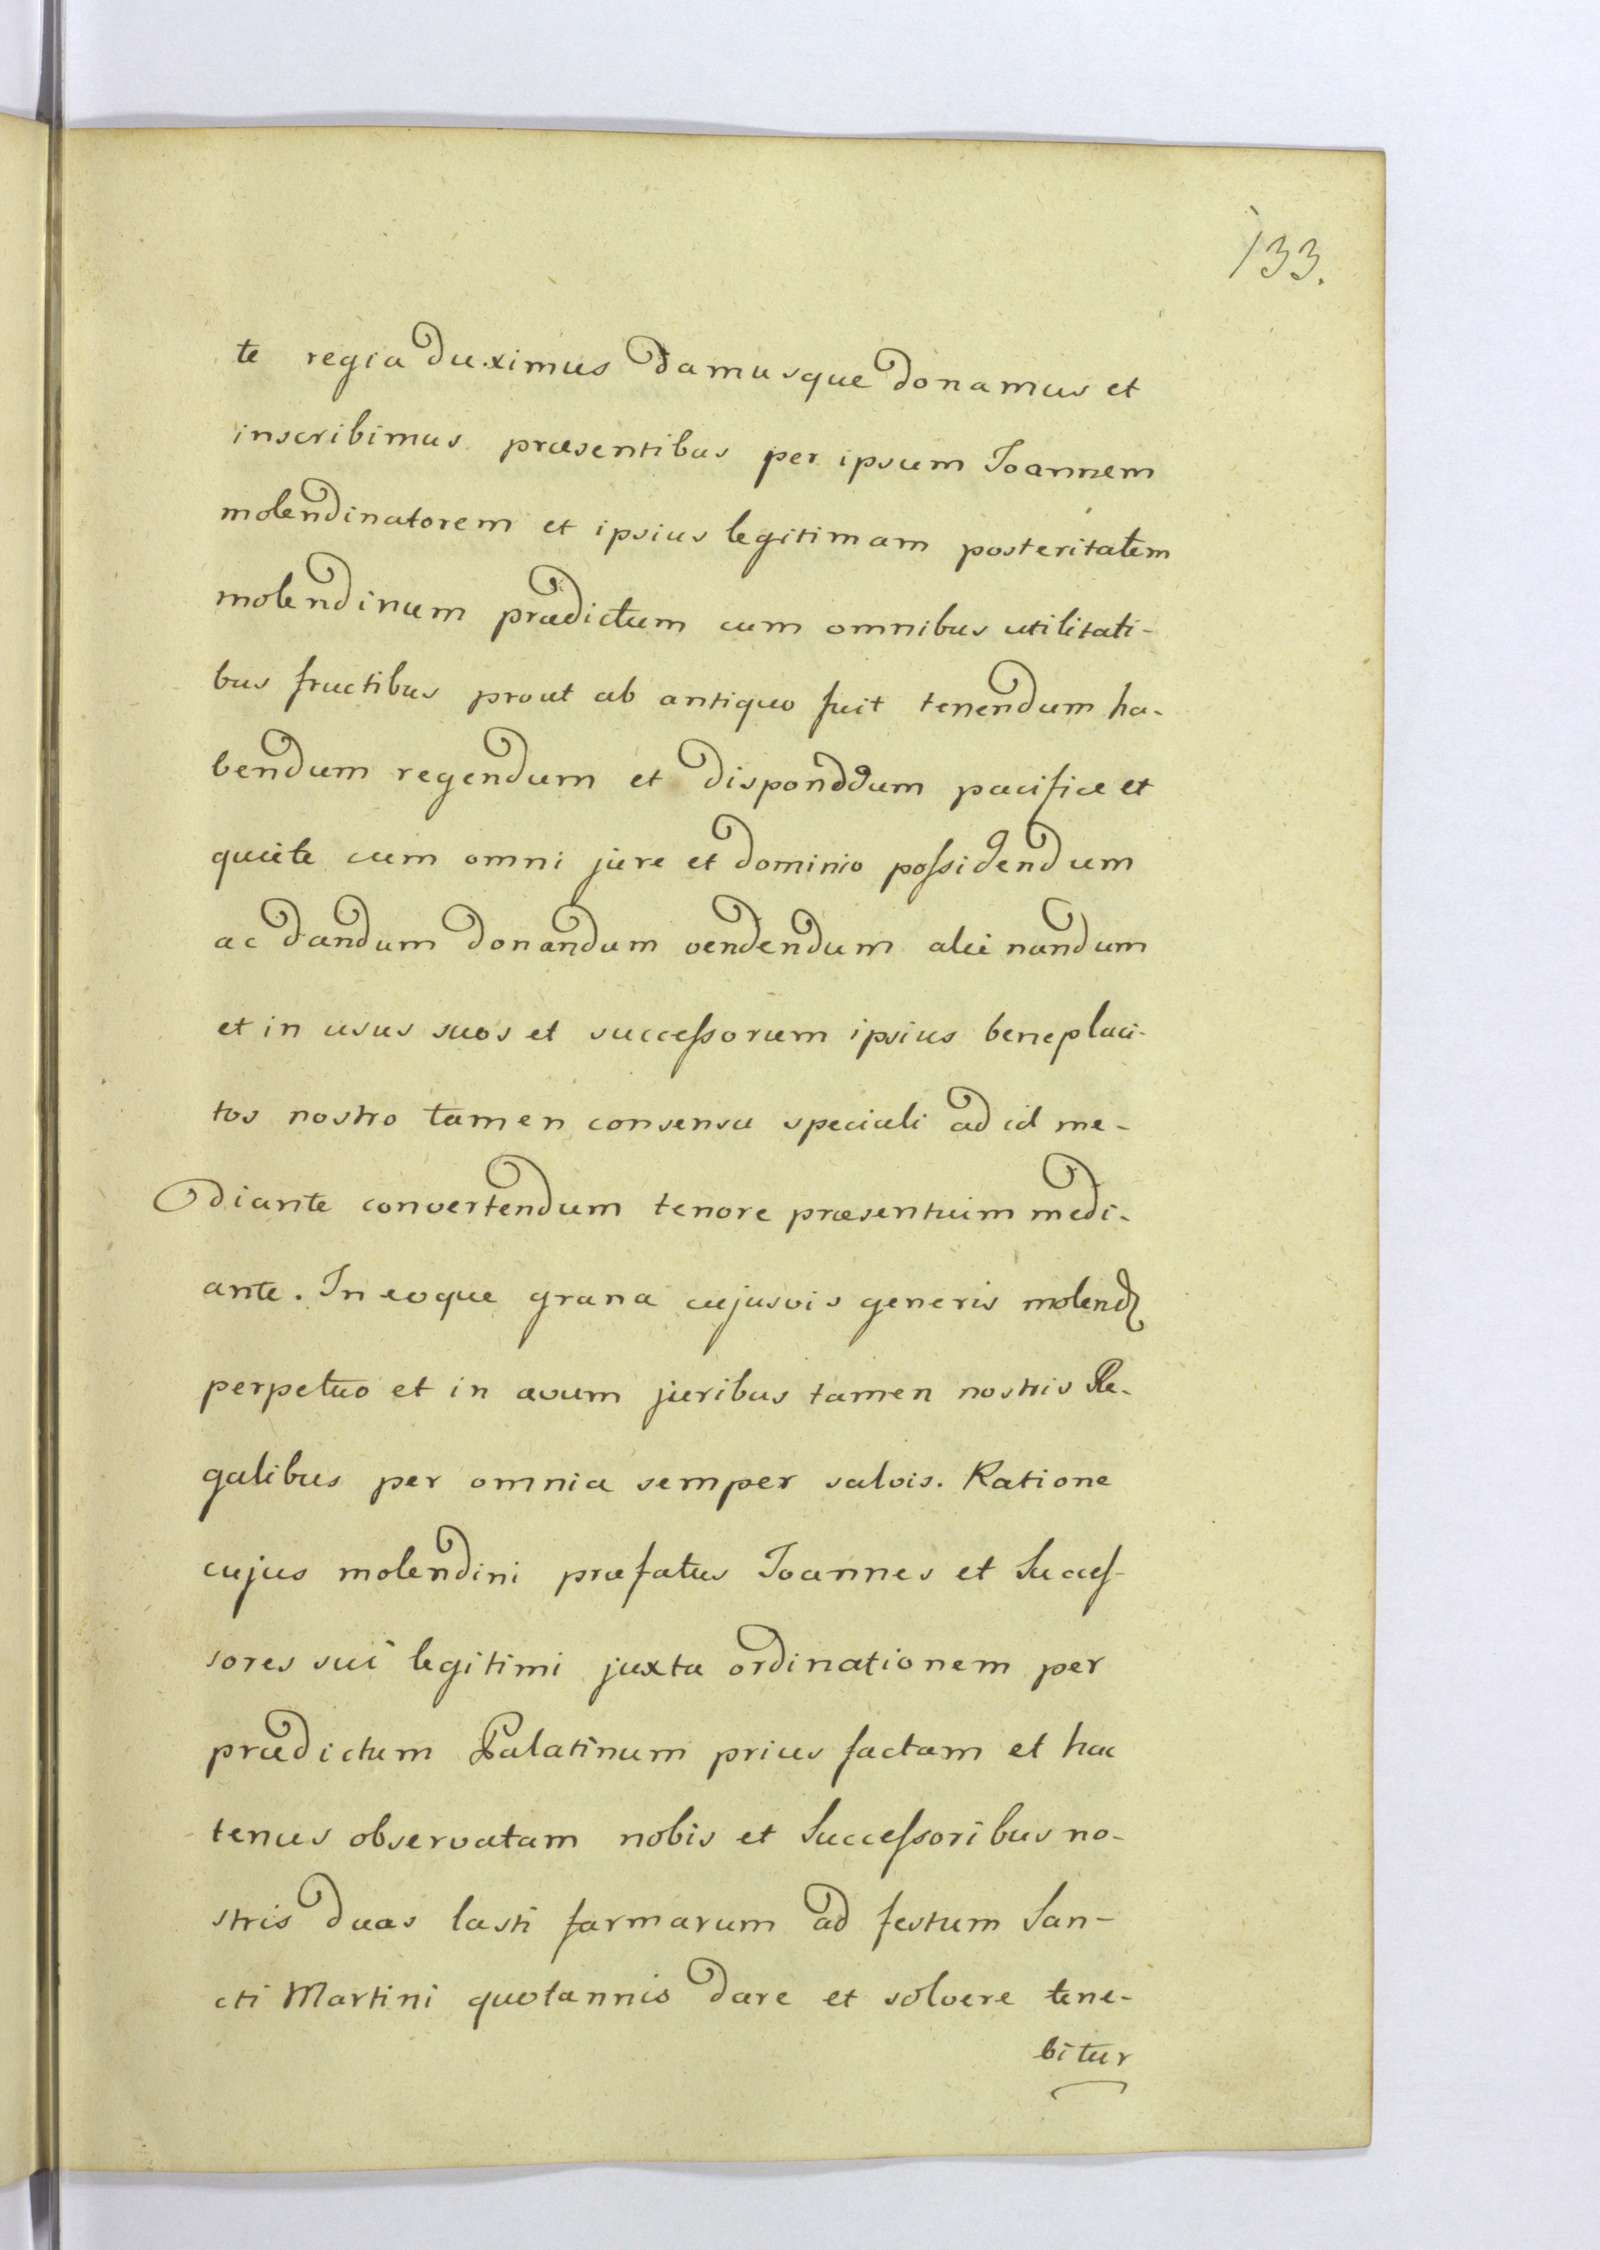 133.
te regia duximus damusque donamus et
inscribimus præsentibus per ipsum Joannem
molendinatorem et ipsius legitimam posteritatem
molendinum prædictum cum omnibus utilitati-
bus fructibus prout ab antiquo fuit tenendum ha-
bendum regendum et disponddum pacifice et
quiete cum omni jure et dominio possidendum
ac dandum donandum vendendum alienandum
et in usus suos et successorum ipsius beneplaci-
tos nostro tamen consensu speciali ad id me-
diante convertendum tenore præsentium medi-
ante. In eoque grana cujusvis generis molend
perpetuo et in ævum juribus tamen nostris Re-
galibus per omnia semper salvis. Ratione
cujus molendini præfatus Joannes et Succes-
sores sui legitimi juxta ordinationem per
prædictum Palatinum prius factam et hac
tenus observatam nobis et Successoribus no-
stris duas lasti farmarum ad festum San-
cti Martini quotannis dare et solvere tene-
bitur